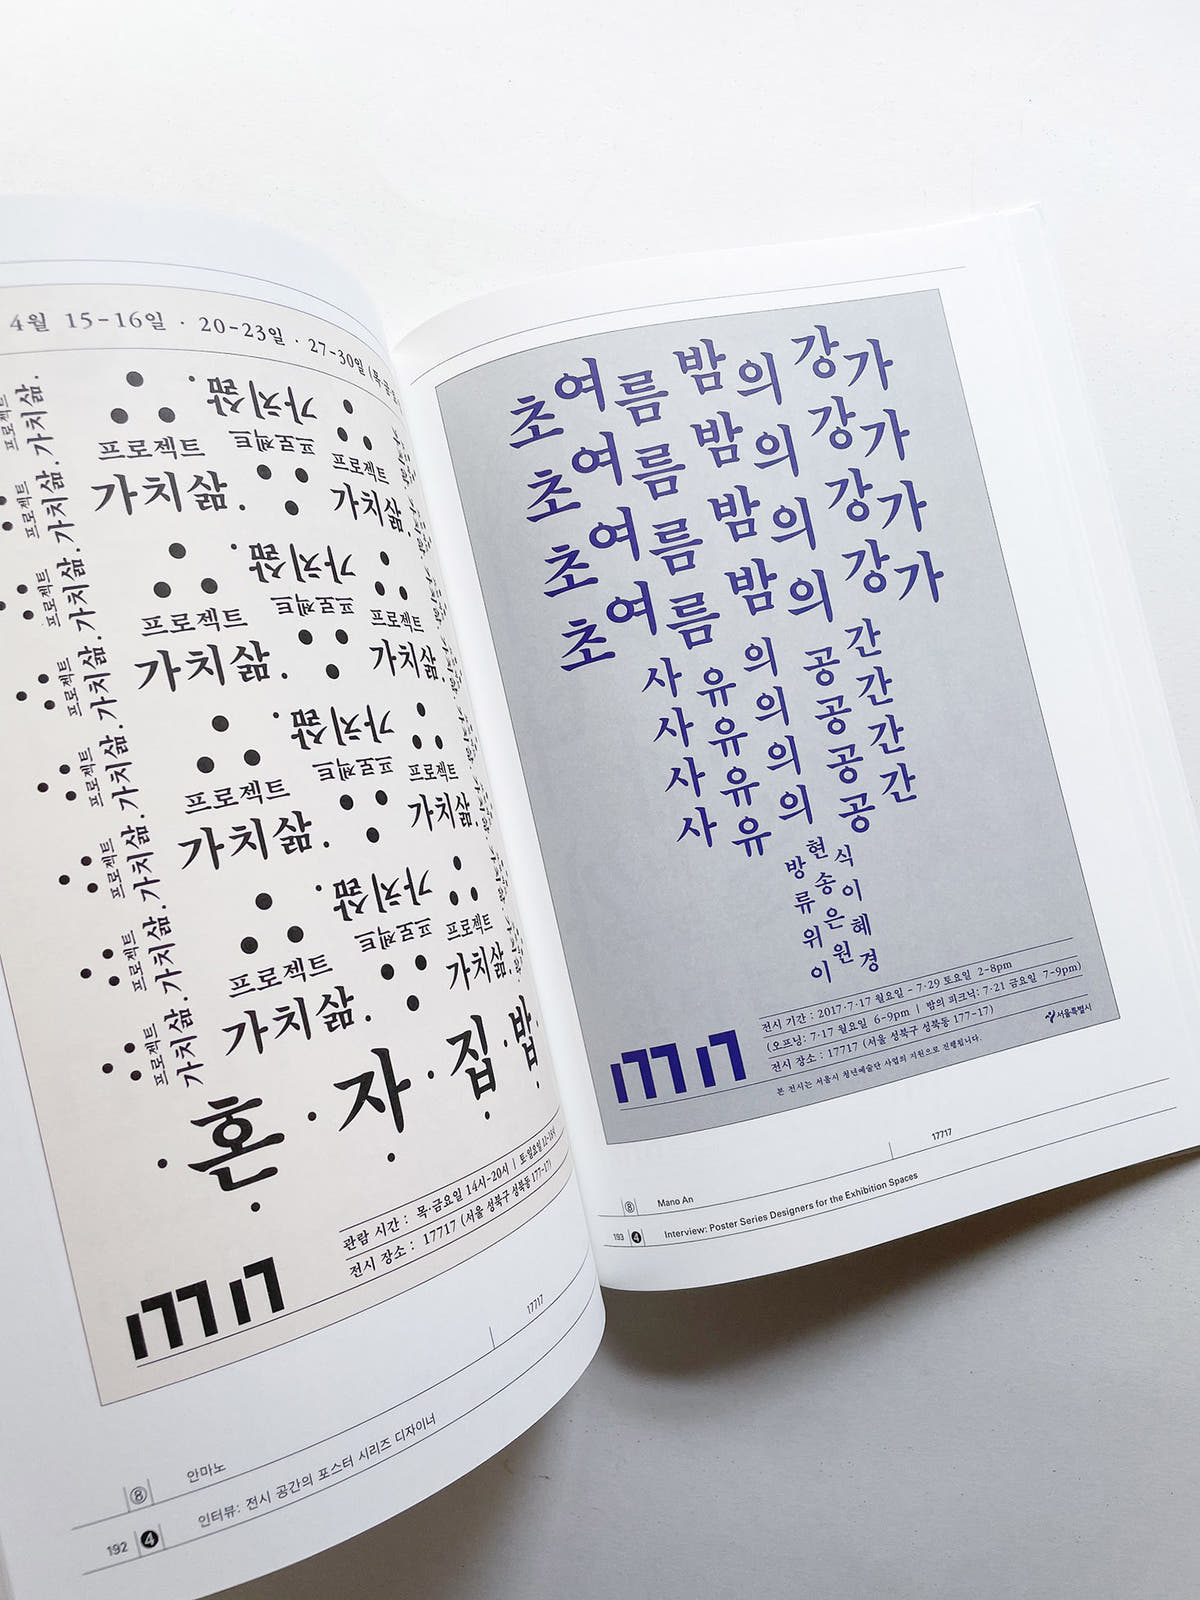 4월 15-16일 · 20-23일 · 27-30일
프로젝트
가치삶.
프로젝트
가치삶.
프로젝트
가치삶.
프로젝트
가치삶.
프로젝트
가치삶.
프로젝트
가치삶.
프로젝트
가치삶.
프로젝트
가치삶.
가치삶.
프로젝트
프로젝트
가치삶.
프로젝트
가치삶.
가치삶.
프로젝트
프로젝트
가치삶.
프로젝트
가치삶.
가치삶.
프로젝트
프로젝트
가치삶.
프로젝트
가치삶.
가치삶.
프로젝트
프로젝트
가치삶.
프로젝트
가치삶.
혼·자·집·밥
관람 시간 : 목·금요일 14시-20시 | 토·일요일
전시 장소 : 17717 (서울 성북구 성북동 177-17)
17717
17717
⑧ 안마노
192 ❹ 인터뷰: 전시 공간의 포스터 시리즈 디자이너
초여름 밤의 강가
초여름 밤의 강가
초여름 밤의 강가
초여름 밤의 강가
사유의 공간
사유의 공간
사유의 공간
사유의 공간
방현식
류송이
위은혜
이원경
전시 기간 : 2017·7·17 월요일 - 7·29 토요일 2-8pm
(오프닝: 7·17 월요일 6-9pm | 밤의 피크닉: 7·21 금요일 7-9pm)
전시 장소 : 17717 (서울 성북구 성북동 177-17)
본 전시는 서울시 청년예술단 사업의 지원으로 진행됩니다.
서울특별시
17717
17717
⑧ Mano An
193 ❹ Interview: Poster Series Designers for the Exhibition Spaces